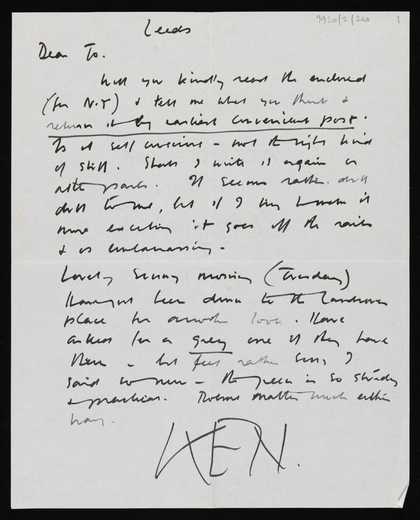 9920/2/260 1
Leeds
Dear Jo.
Will you kindly read the enclosed
(for N.Y) & tell me what you think &
return it by earliest convenient post.
Is it self conscious - not the right kind
of stuff. Shall I write it again or
alter parts. It seems rather dull
dull to me, but if I try to make it
more exciting it goes off the rails
& is embarrassing.
Lovely Sunny morning (Tuesday)
Have just been down to the Landrover
place for another look. Have
asked for a grey one if they have
them - but feel rather sorry I
said so now - the green is so sturdy
& practical. Doesn't matter much either
way.
KEN.